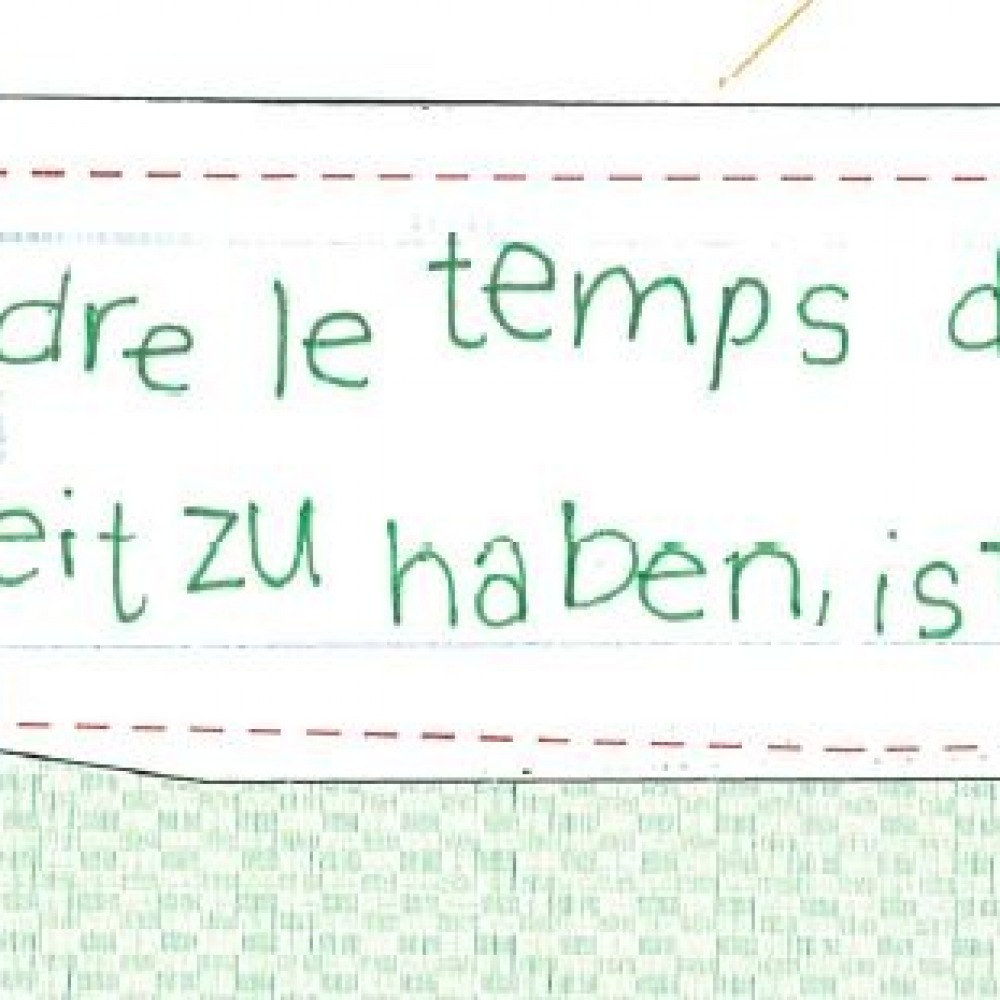 dre le temps d
eit zu haben, ist